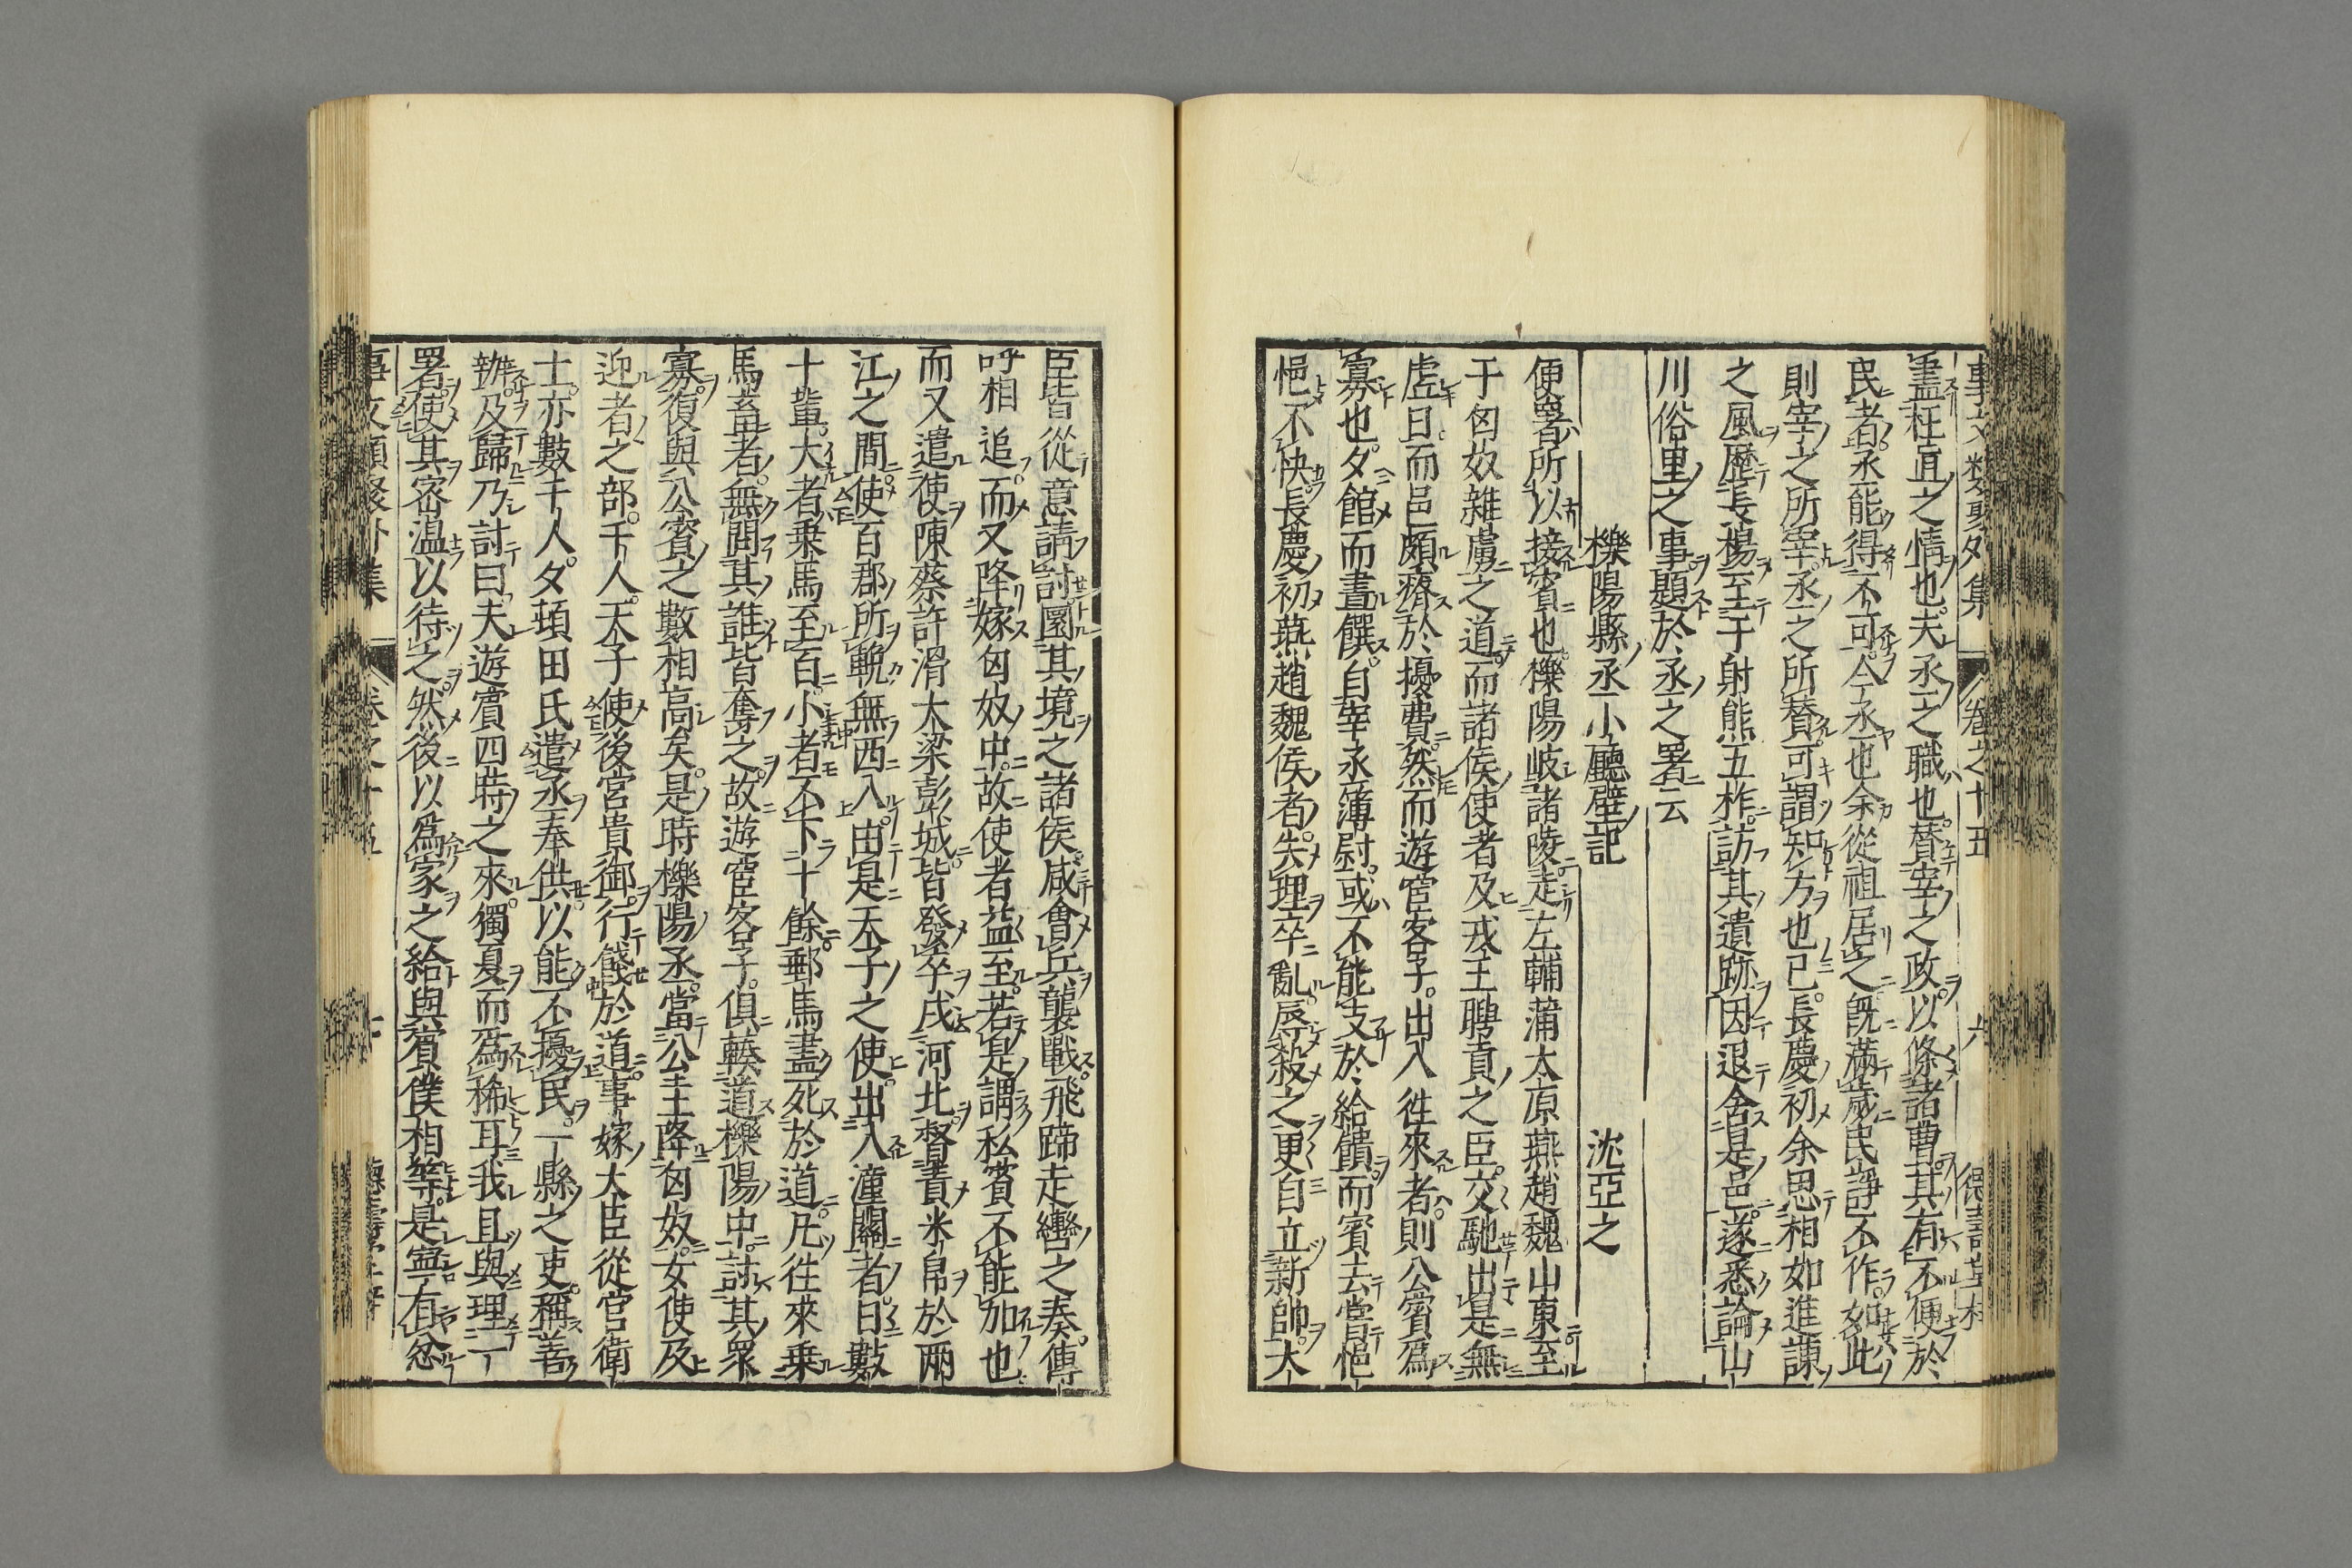 事文類聚外集 卷之十五 六 德壽堂梓
盡枉直之情也夫丞之職也賛宰之政以條諸曹其有不便於
民者丞能得不可今丞也余從祖居之旣滿歲民諍不作如此
則宰之所宰丞之所賛可謂知方也已長慶初余思相如進諫
之風歷長楊至于射熊五柞訪其遺跡因退舍是邑遂悉論山
川俗里之事題於丞之署云
櫟陽縣丞小廳壁記 沈亞之
便署所以接賓也櫟陽岐諸陵走左輔蒲太原燕趙魏山東至
于匈奴雜虜之道而諸侯使者及戎王聘貢之臣交馳出是無
虛日而邑頗瘠於擾費然而遊宦客子出入徃來者則公賓爲
寡也夕館而晝饌自宰丞薄尉或不能支於給饋而賓去嘗悒
悒不快長慶初燕趙魏侯者失理卒亂辱殺之更自立新帥大
臣皆從意請討圜其境之諸侯咸會兵襲戰飛蹄走轡之奏傳
呼相追而又降嫁匈奴中故使者益至若是謂私賓不能加也
而又遣使陳蔡許滑大梁彭城皆發卒戌河北督責米帛於兩
江之間使百郡所輓無西入由是天子之使出入潼關者日數
十輩大者乗馬至百小者不下十餘郵馬盡死於道凡徃來乗
馬蓄者無問其誰皆奪之故遊宦客子俱轃道櫟陽中訪其衆
寡復與公賓之數相高矣是時櫟陽丞當公主降匈奴女使及
迎者之部千人天子使後宮貴御行餞於道事嫁大臣從官衛
士亦數千人夕頓田氏遣丞奉供以能不擾民一縣之吏稱善
辦及歸乃討曰夫遊賓四時之來獨夏而爲稀耳我且與理一
署使其宻温以待之然後以爲家之給與賓僕相等是寕有忿
事文類聚外集 卷之十五 七 德壽堂梓